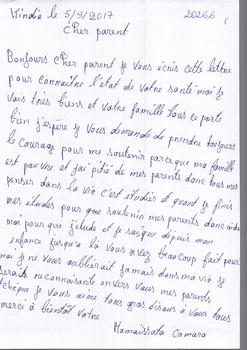 Kindia le 5/9/2017 20266
cher parent
Bonjours cher parent je vous écris cette lettre
pour connaitre l'état de votre santé moi je
vais très biens et votre famille tous ce porte
bien j'espère je vous demande de prendre toujours
le courage pour me soutenir parce que ma famille
est pauvre et j'ai pitié de mes parents donc tous mes
penser dans la vie c'est étudier et quand je finis
mes études pour que soutenir mes parents donc aide
moi pour que j'étude et je sais que depuis mon
enfance jusqu'à là vous avez beaucoup fait pour
moi je ne vous oublierait jamais dans ma vie je
serais reconnaissante envers vous mes parents
chèque je vous aime tous gros bisous à vous tous
merci à bientôt votre
Mamaissata Camara